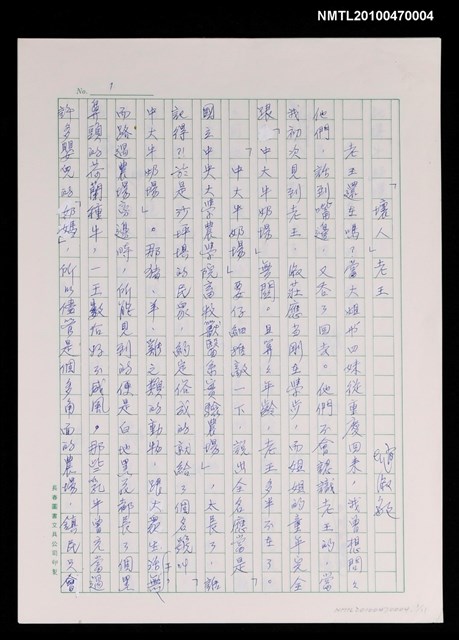 NMTL20100470004
No. 1
「壞人」老王
老王還在嗎，當大姐形四妹從重慶回來，我曾想問々
他們，話到嘴邊，又吞了回來。他們不會認識老王的，當
我初次見到老王，淑莊應當剛在學步，而姐姐的童年完全
跟「中大牛奶場」無關。且算々年齡，老王多半不在了。
「中大牛奶場」要仔細推敲一下，說出全名應當是「
國立中央大學農學院畜牧獸醫系實驗農場」，太長了，誰
記得？於是沙坪壩的民眾，約定俗成的就給了個名號叫「
中大牛奶場」。那豬、羊、雞之類的動物，跟大農生活無
而路過農場旁邊時，所能見到的便是白地黑花都長了個黑
鼻頭的荷蘭種牛，一王數右好不威風。那些乳牛曾充當過
許多嬰兒的「奶媽」，所以儘管是個多角面的農場，鎮民只會
長春圖書文具公司印製
NMTL20100470004